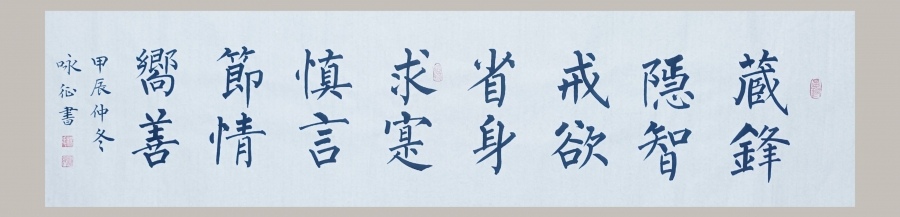 藏鋒
隱智
戒欲
省身
求寔
慎言
節情
嚮善
甲辰仲冬
咏征書